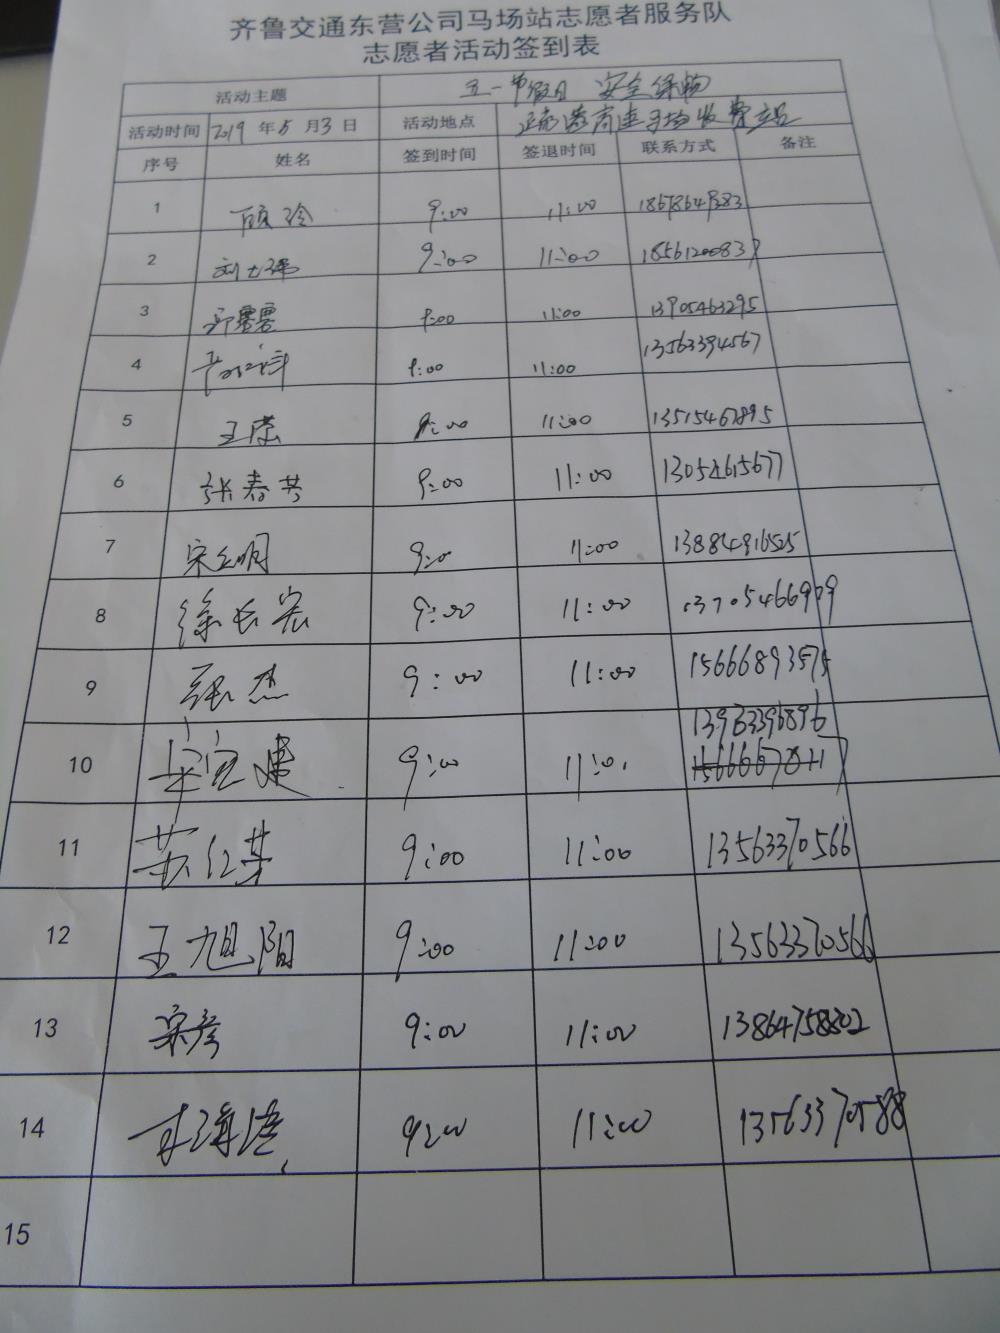 齐鲁交通东营公司马场站志愿者服务队
志愿者活动签到表
活动主题 五一节假日 安全保畅
活动时间 2019 年 5 月 3 日 活动地点 高速马场收费站
序号 姓名 签到时间 签退时间 联系方式 备注
1 顾玲 9:00 11:00
2 9:00 11:00 18561200837
3 9:00 11:00 13905463295
4 9:00 11:00 13563394567
5 王荣 9:00 11:00 13515467895
6 张春芳 9:00 11:00 13054615677
7 宋立明 9:0 11:00 13884816525
8 徐长宏 9:00 11:00 13705466909
9 张杰 9:00 11:00 15666893575
10 9:00 11:0 13963396896
11 苏红芳 9:00 11:00 13563370566
12 王旭阳 9:00 11:00 13563370566
13 宋彦 9:00 11:00 13864758802
14 李海涛 9:00 11:00 13563370588
15